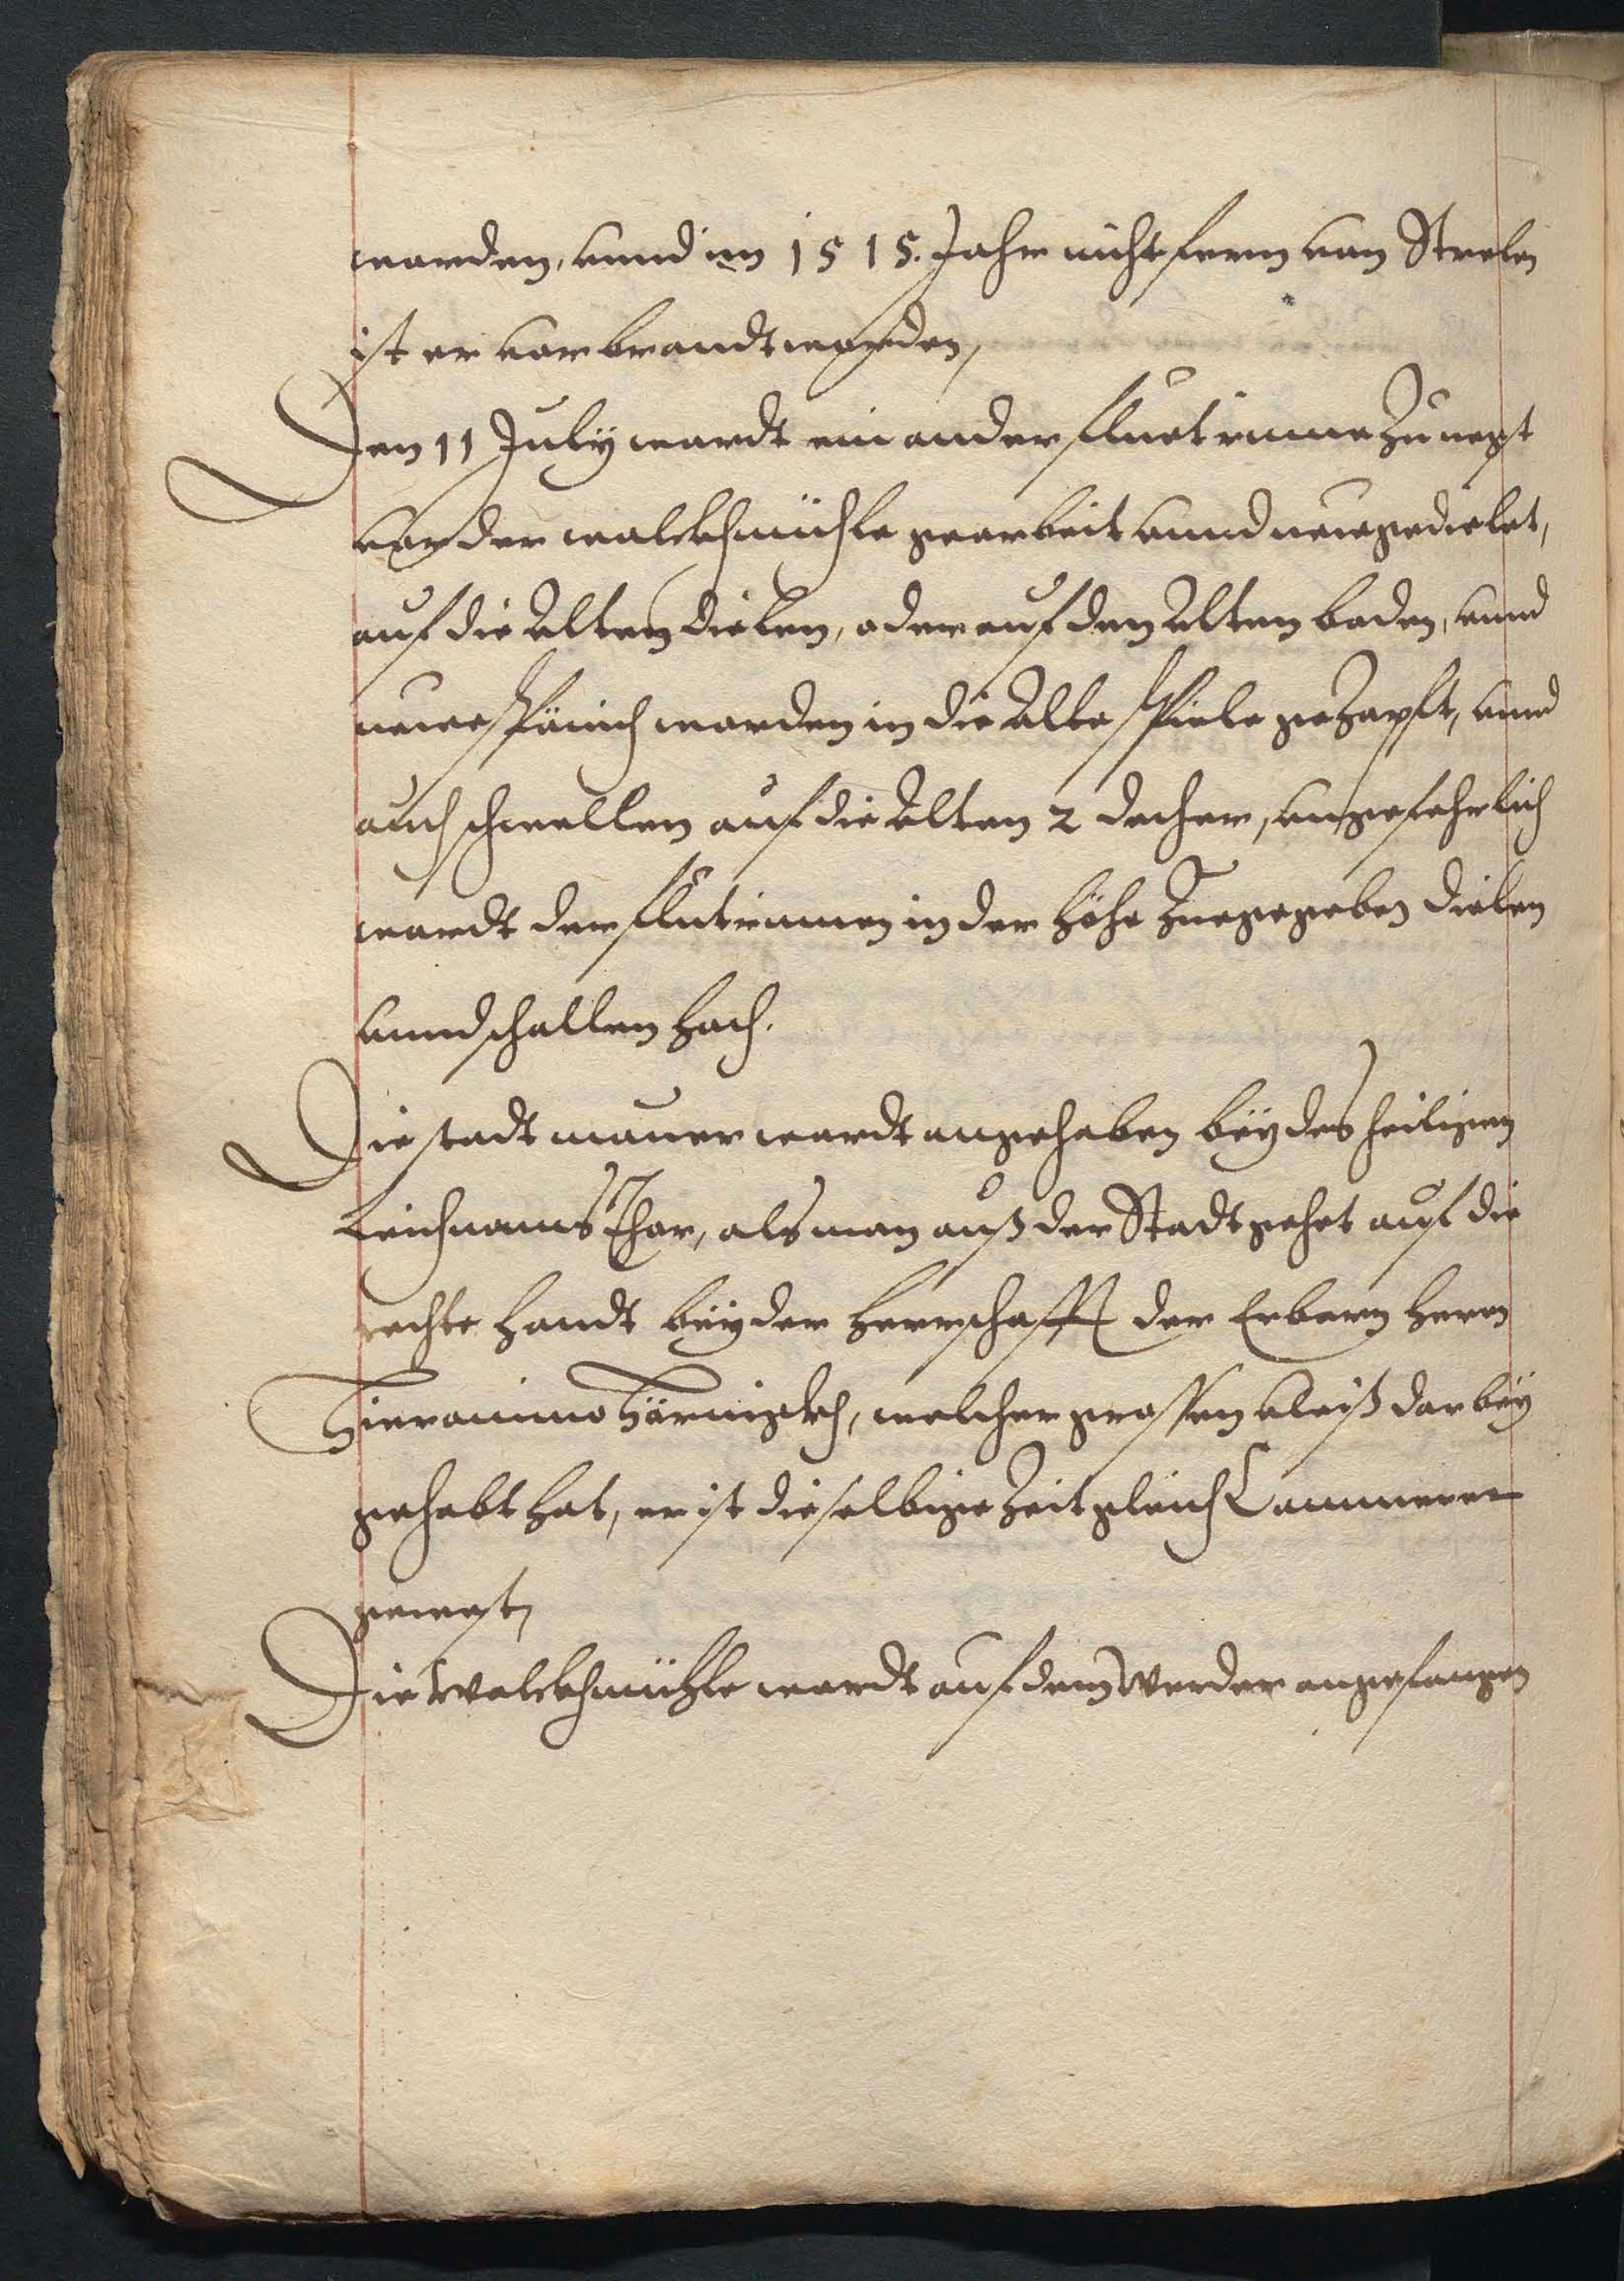 worden, vnnd im 1515. Jahr nicht fern von Strelen
ist er vorbrandt worden,
Den 11 July wardt ein ander fluet rinne zu negst
vor der walckhmühle gearbeit vnnd neu gedielet,
auf die Alten dielen, oder auf den Alten boden, vnnd
neue worden in die Alte gezapft, vnnd
auch schwellen auf die Alten 2 decher, vngefehrlich
wardt der flutrinnen in der höhe zuegegeben dielen
vnnd schallen hoch.
Die stadt mauer wardt angehoben bey des heiligen
Leichnams Thor, als man auß der Stadt gehet auf die
rechte handt bey der herrschafft der Erbarn herrn
Hieronimo Hörnigkh, welcher grossen vleiß dorbey
gehabt hat, er ist dieselbige zeit gleich Cammerer
gewest,
Die Walckhmühle wardt auf dem Werder angefangen